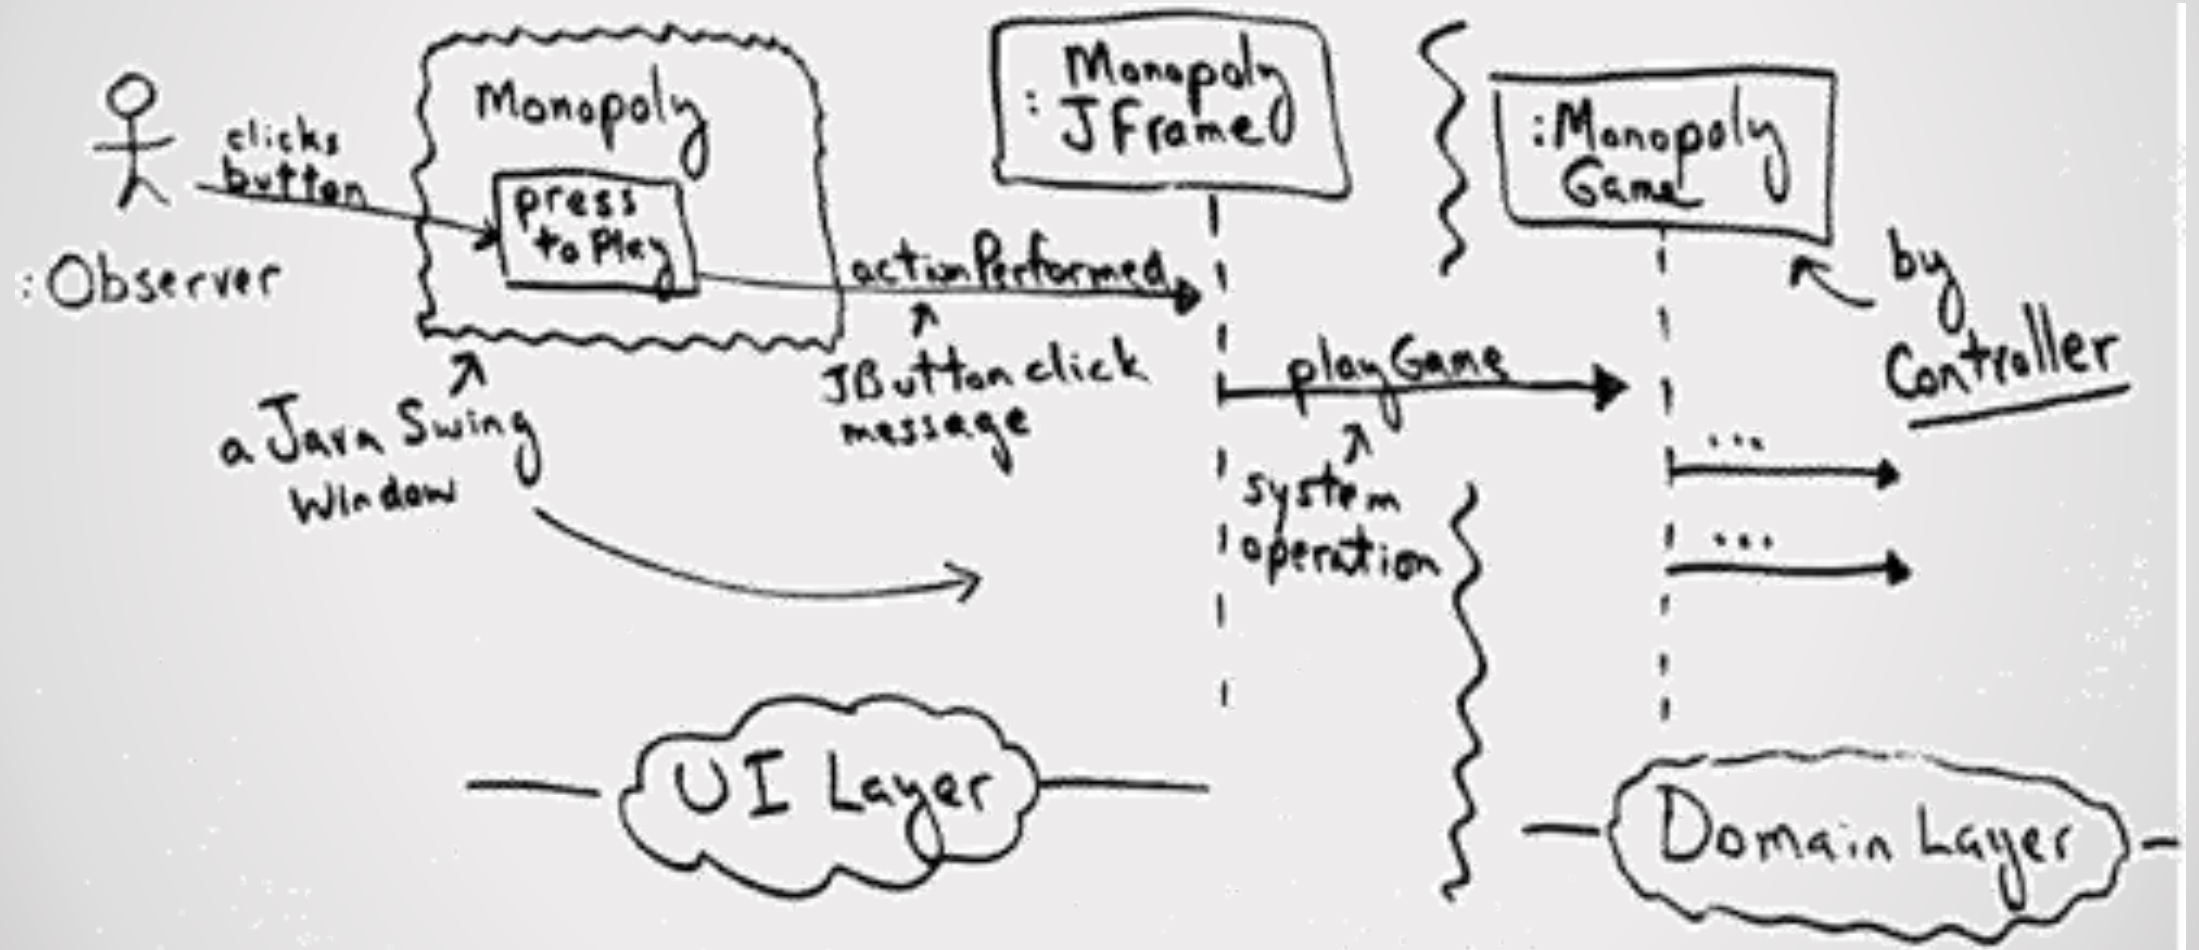 :Observer
clicks
button
Monopoly
press
to Play
a Java Swing
Window
actionPerformed
JButton click
message
: Monopoly
JFrame
playGame
system
operation
:Monopoly
Game
by
Controller
...
...
UI Layer
Domain Layer